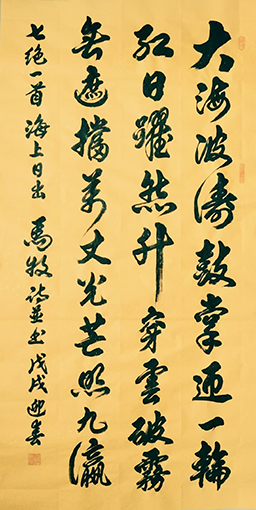 大海波濤鼓掌迎一輪
紅日躍然升穿雲破霧
無遮擋萬丈光芒照九瀛
七绝一首 海上日出 馬牧詩並书 戊戌迎春